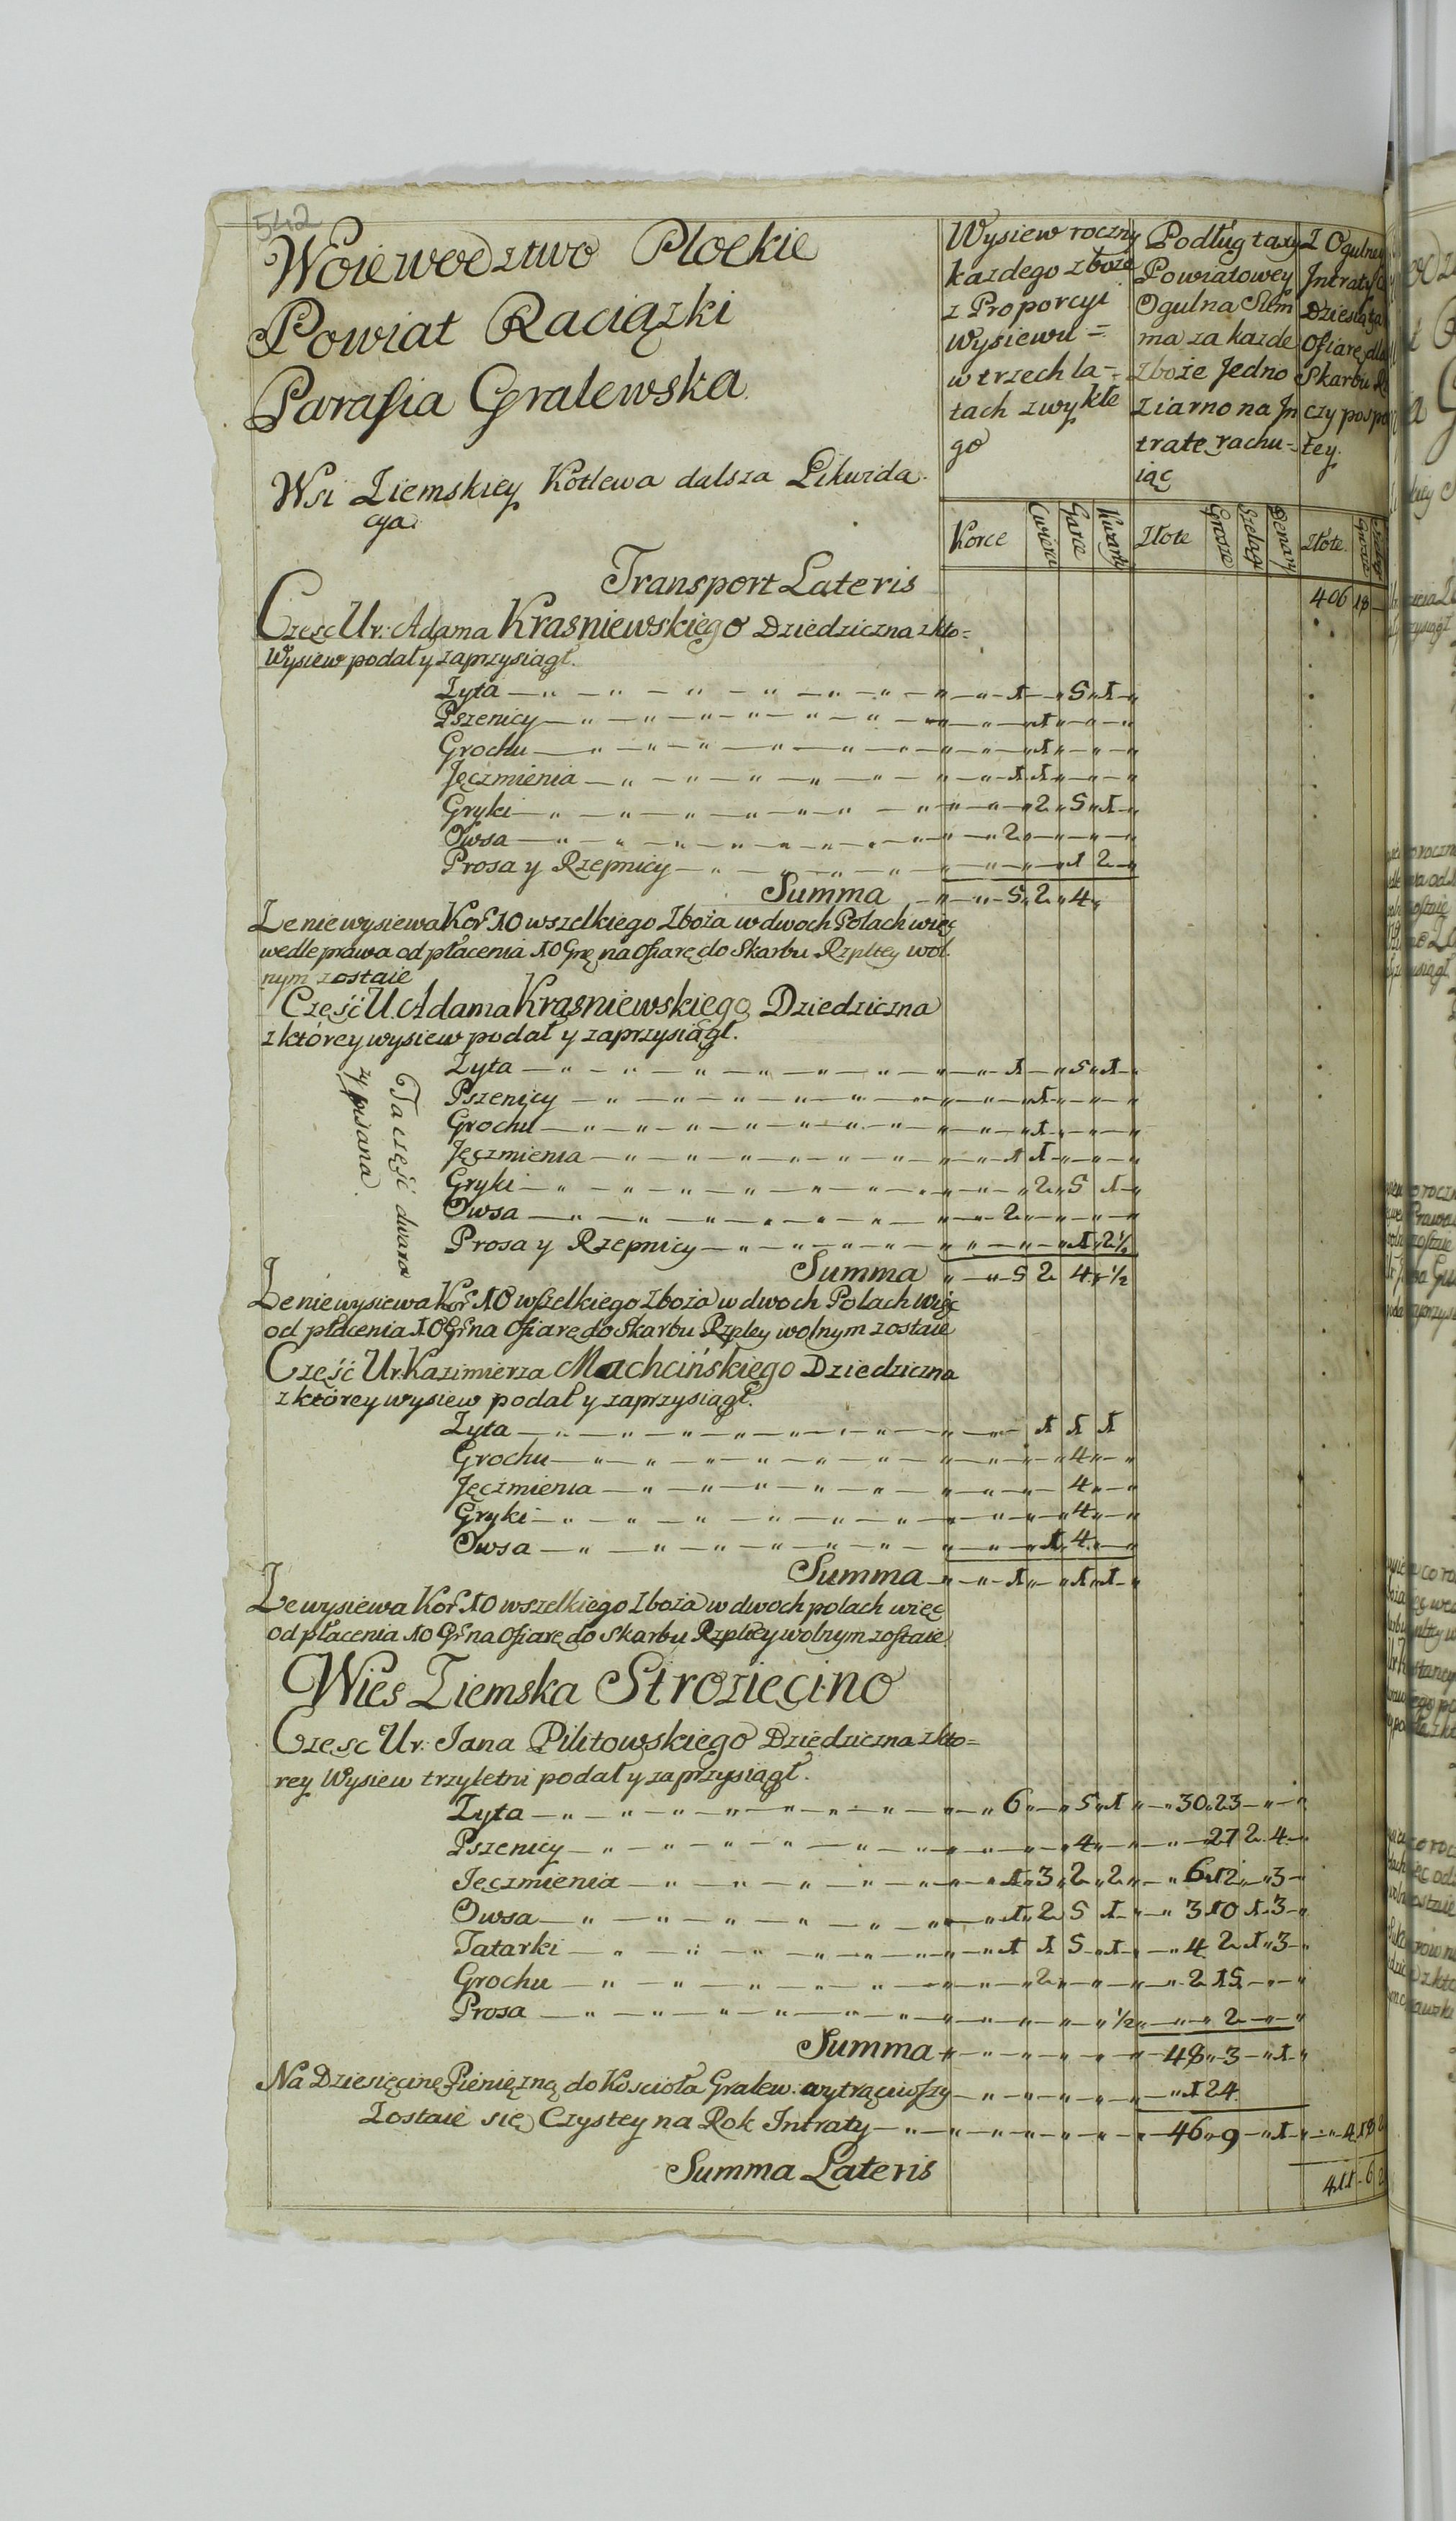 542
Woiewodztwo Płockie
Powiat Raciązki
Parafia Gralewska
Wsi Ziemskiey Kotlewa dalsza Likwida
cya
Wysiew roczny
kazdego zboza
z Proporcyi
Wysiewu =
w trzech la=
tach zwykłe
go
Podług taxy
Powiatowey
Ogulna Sum
ma za kazde
zboże Jedno
ziarno na Jn
tratę rachu=
iąc
Z Ogulney
Jntraty
Dziesiąta
Ofiarę dla
Skarbu
czy pospo
łey
Korce Cwierci Garce Kwarty Złote Grosze Szelągi Denary Złote Grosze
Transport Lateris 406 18
Częsc Ur: Adama Krasniewskiego Dziedziczna z kto=
Wysiew podał y zaprzysiągł.
Zyta — 1 — 5 1
Pszenicy — 1
Grochu — 1
Jęczmienia — 1 1
Gryki — 2 5 1
Owsa — 2
Prosa y Rzepnicy — 1 2
Summa — 5 2 4
Ze nie wysiewa Kor: 10 wszelkiego Zboża w dwoch Polach więc
wedle prawa od płacenia 10 Grę na Ofiarę do Skarbu Rzpltey wol
nym zostaie
Część U. Adama Krasniewskiego Dziedziczna
z którey wysiew podał y zaprzysiągł.
Ta część dwara
zy pisana
Zyta — 1 — 5 1
Pszenicy — 1
Grochu — 1
Jęczmienia — 1 1
Gryki — 2 5 1
Owsa — 2
Prosa y Rzepnicy — 1 2½
Summa — 5 2 4 ½
Ze nie wysiewa Kor: 10 wszelkiego Zboża w dwoch Polach więc
od płacenia 10 Gr: na Ofiarę do Skarbu Rzpley wolnym zostaie
Część Ur. Kazimierza Machcińskiego Dziedziczna
z którey wysiew podał y zaprzysiągł.
Zyta — 1 1 1
Grochu — 4
Jęczmienia — 4
Gryki — 4
Owsa — 1 4
Summa — 1 — 1 1
Ze wysiewa Kor: 10 wszelkiego Zboża w dwoch polach więc
od płacenia 10 Gr: na Ofiarę do Skarbu Rzpltey wolnym zostaie
Wies Ziemska Stroziecino
Czesc Ur: Jana Pilitowskiego Dziedziczna z kto=
rey Wysiew trzyletni podał y zaprzysiągł.
Zyta — 6 — 5 1 — 30 23
Pszenicy — 4 — 27 2 4
Jęczmienia — 1 3 2 2 — 6 12 — 3
Owsa — 1 2 5 1 — 3 10 1 3
Tatarki — 1 1 5 1 — 4 2 1 3
Grochu — 2 — 2 15
Prosa — ½ — 2
Summa — 48 3 — 1
Na Dziesięcinę Pieniężną do Koscioła Gralew: wytrąciwszy — 1 24
Zostaie się Czystey na Rok Intraty — 46 9 — 1 — 4 18 2
Summa Lateris 411 6 2